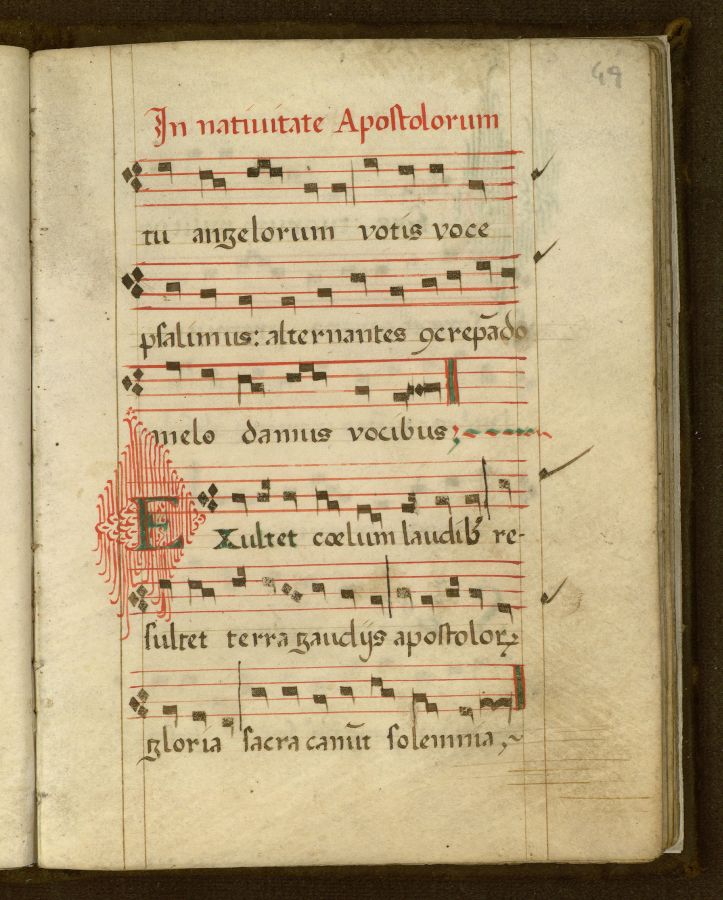 49
In natiuitate Apostolorum
tu angelorum votis voce
psalimus: alternantes ꝯcrepādo
melo damus vocibus;
EXultet cœlum laudibꝰ re-
sultet terra gaudijs apostoloꝝ
gloria sacra canūt solemnia,